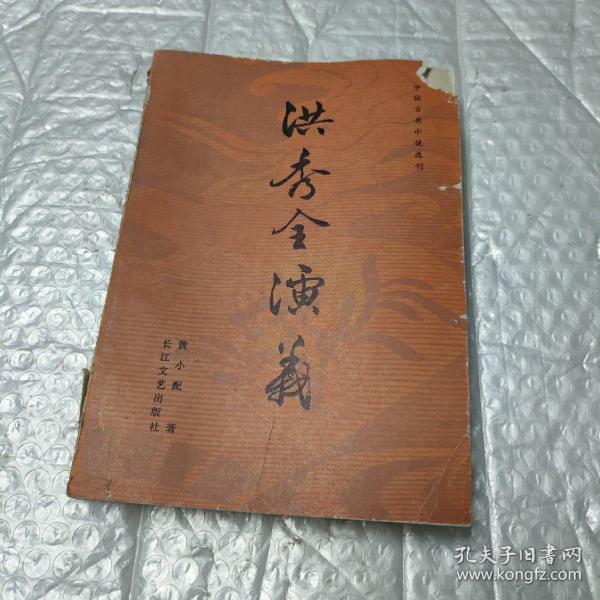 中国古典小说选刊
洪秀全演義
黄小配 著
长江文艺出版社
孔夫子旧书网
www.kongfz.com